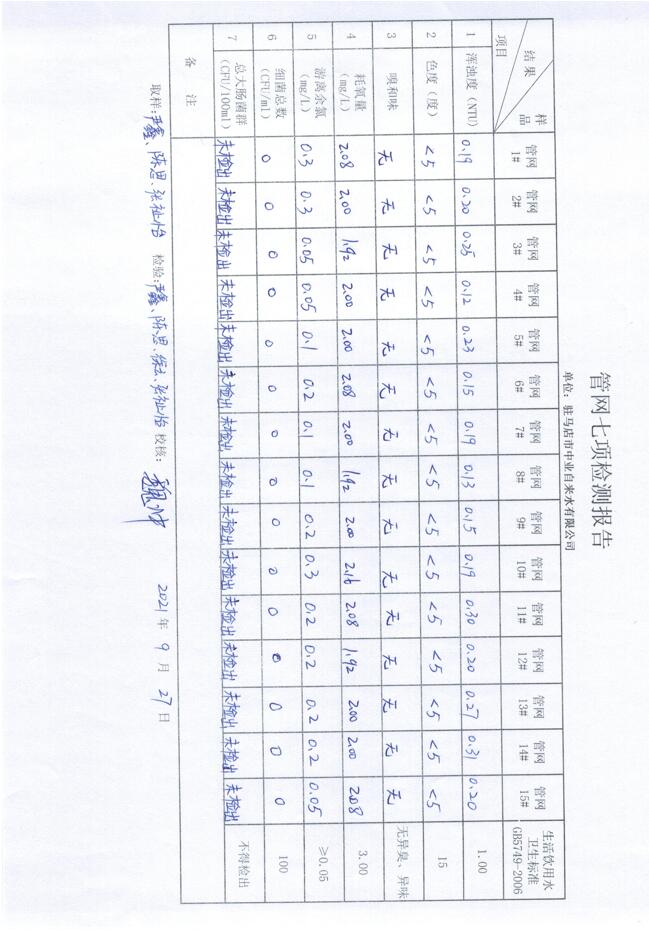 管网七项检测报告
单位：驻马店市中业自来水有限公司
样品 结果 项目 管网1# 管网2# 管网3# 管网4# 管网5# 管网6# 管网7# 管网8# 管网9# 管网10# 管网11# 管网12# 管网13# 管网14# 管网15# 生活饮用水卫生标准GB5749-2006
1 浑浊度（NTU） 0.19 0.20 0.25 0.12 0.23 0.15 0.19 0.13 0.15 0.19 0.30 0.20 0.27 0.31 0.20 1.00
2 色度（度） <5 <5 <5 <5 <5 <5 <5 <5 <5 <5 <5 <5 <5 <5 <5 15
3 嗅和味 无 无 无 无 无 无 无 无 无 无 无 无 无 无 无 无异臭、异味
4 耗氧量（mg/L） 2.08 2.00 1.92 2.00 2.00 2.08 2.00 1.92 2.00 2.16 2.08 1.92 2.00 2.00 2.08 3.00
5 游离余氯（mg/L） 0.3 0.3 0.05 0.05 0.1 0.2 0.1 0.1 0.2 0.3 0.2 0.2 0.2 0.2 0.05 ≥0.05
6 细菌总数（CFU/ml） 0 0 0 0 0 0 0 0 0 0 0 0 0 0 0 100
7 总大肠菌群（CFU/100ml） 未检出 未检出 未检出 未检出 未检出 未检出 未检出 未检出 未检出 未检出 未检出 未检出 未检出 未检出 未检出 不得检出
备 注
取样：尹鑫、陈思、张祉怡 检验：尹鑫、陈思、徐、张祉怡 校核： 2021年 9 月 27 日